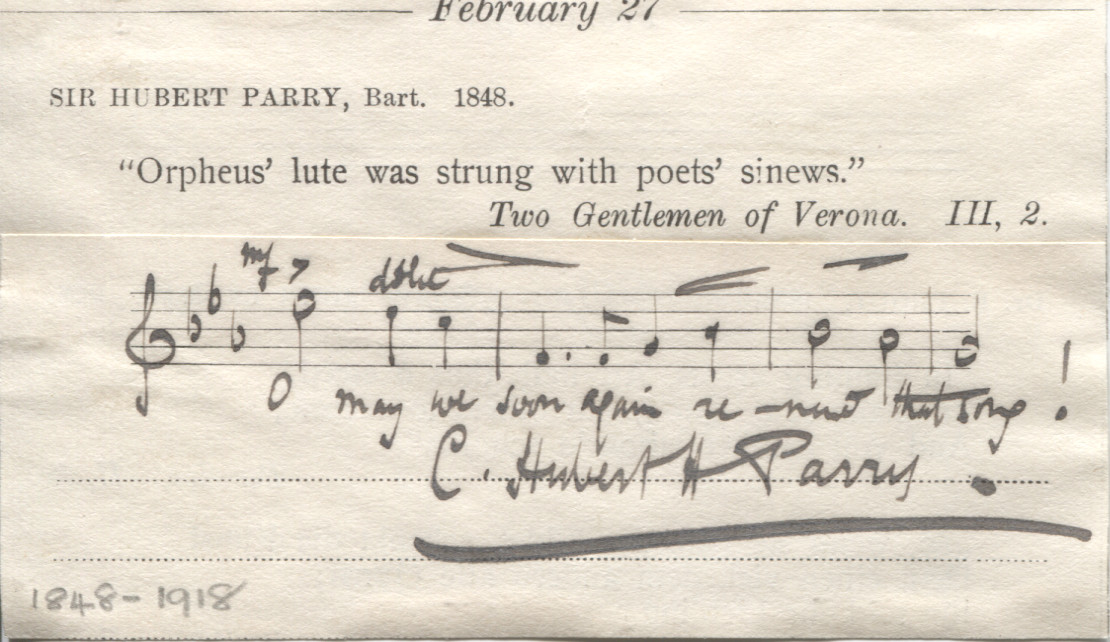 February 27
SIR HUBERT PARRY, Bart. 1848.
“Orpheus’ lute was strung with poets’ sinews.”
Two Gentlemen of Verona. III, 2.
mf
O may we soon again re-new that song !
C. Hubert H Parry.
1848-1918